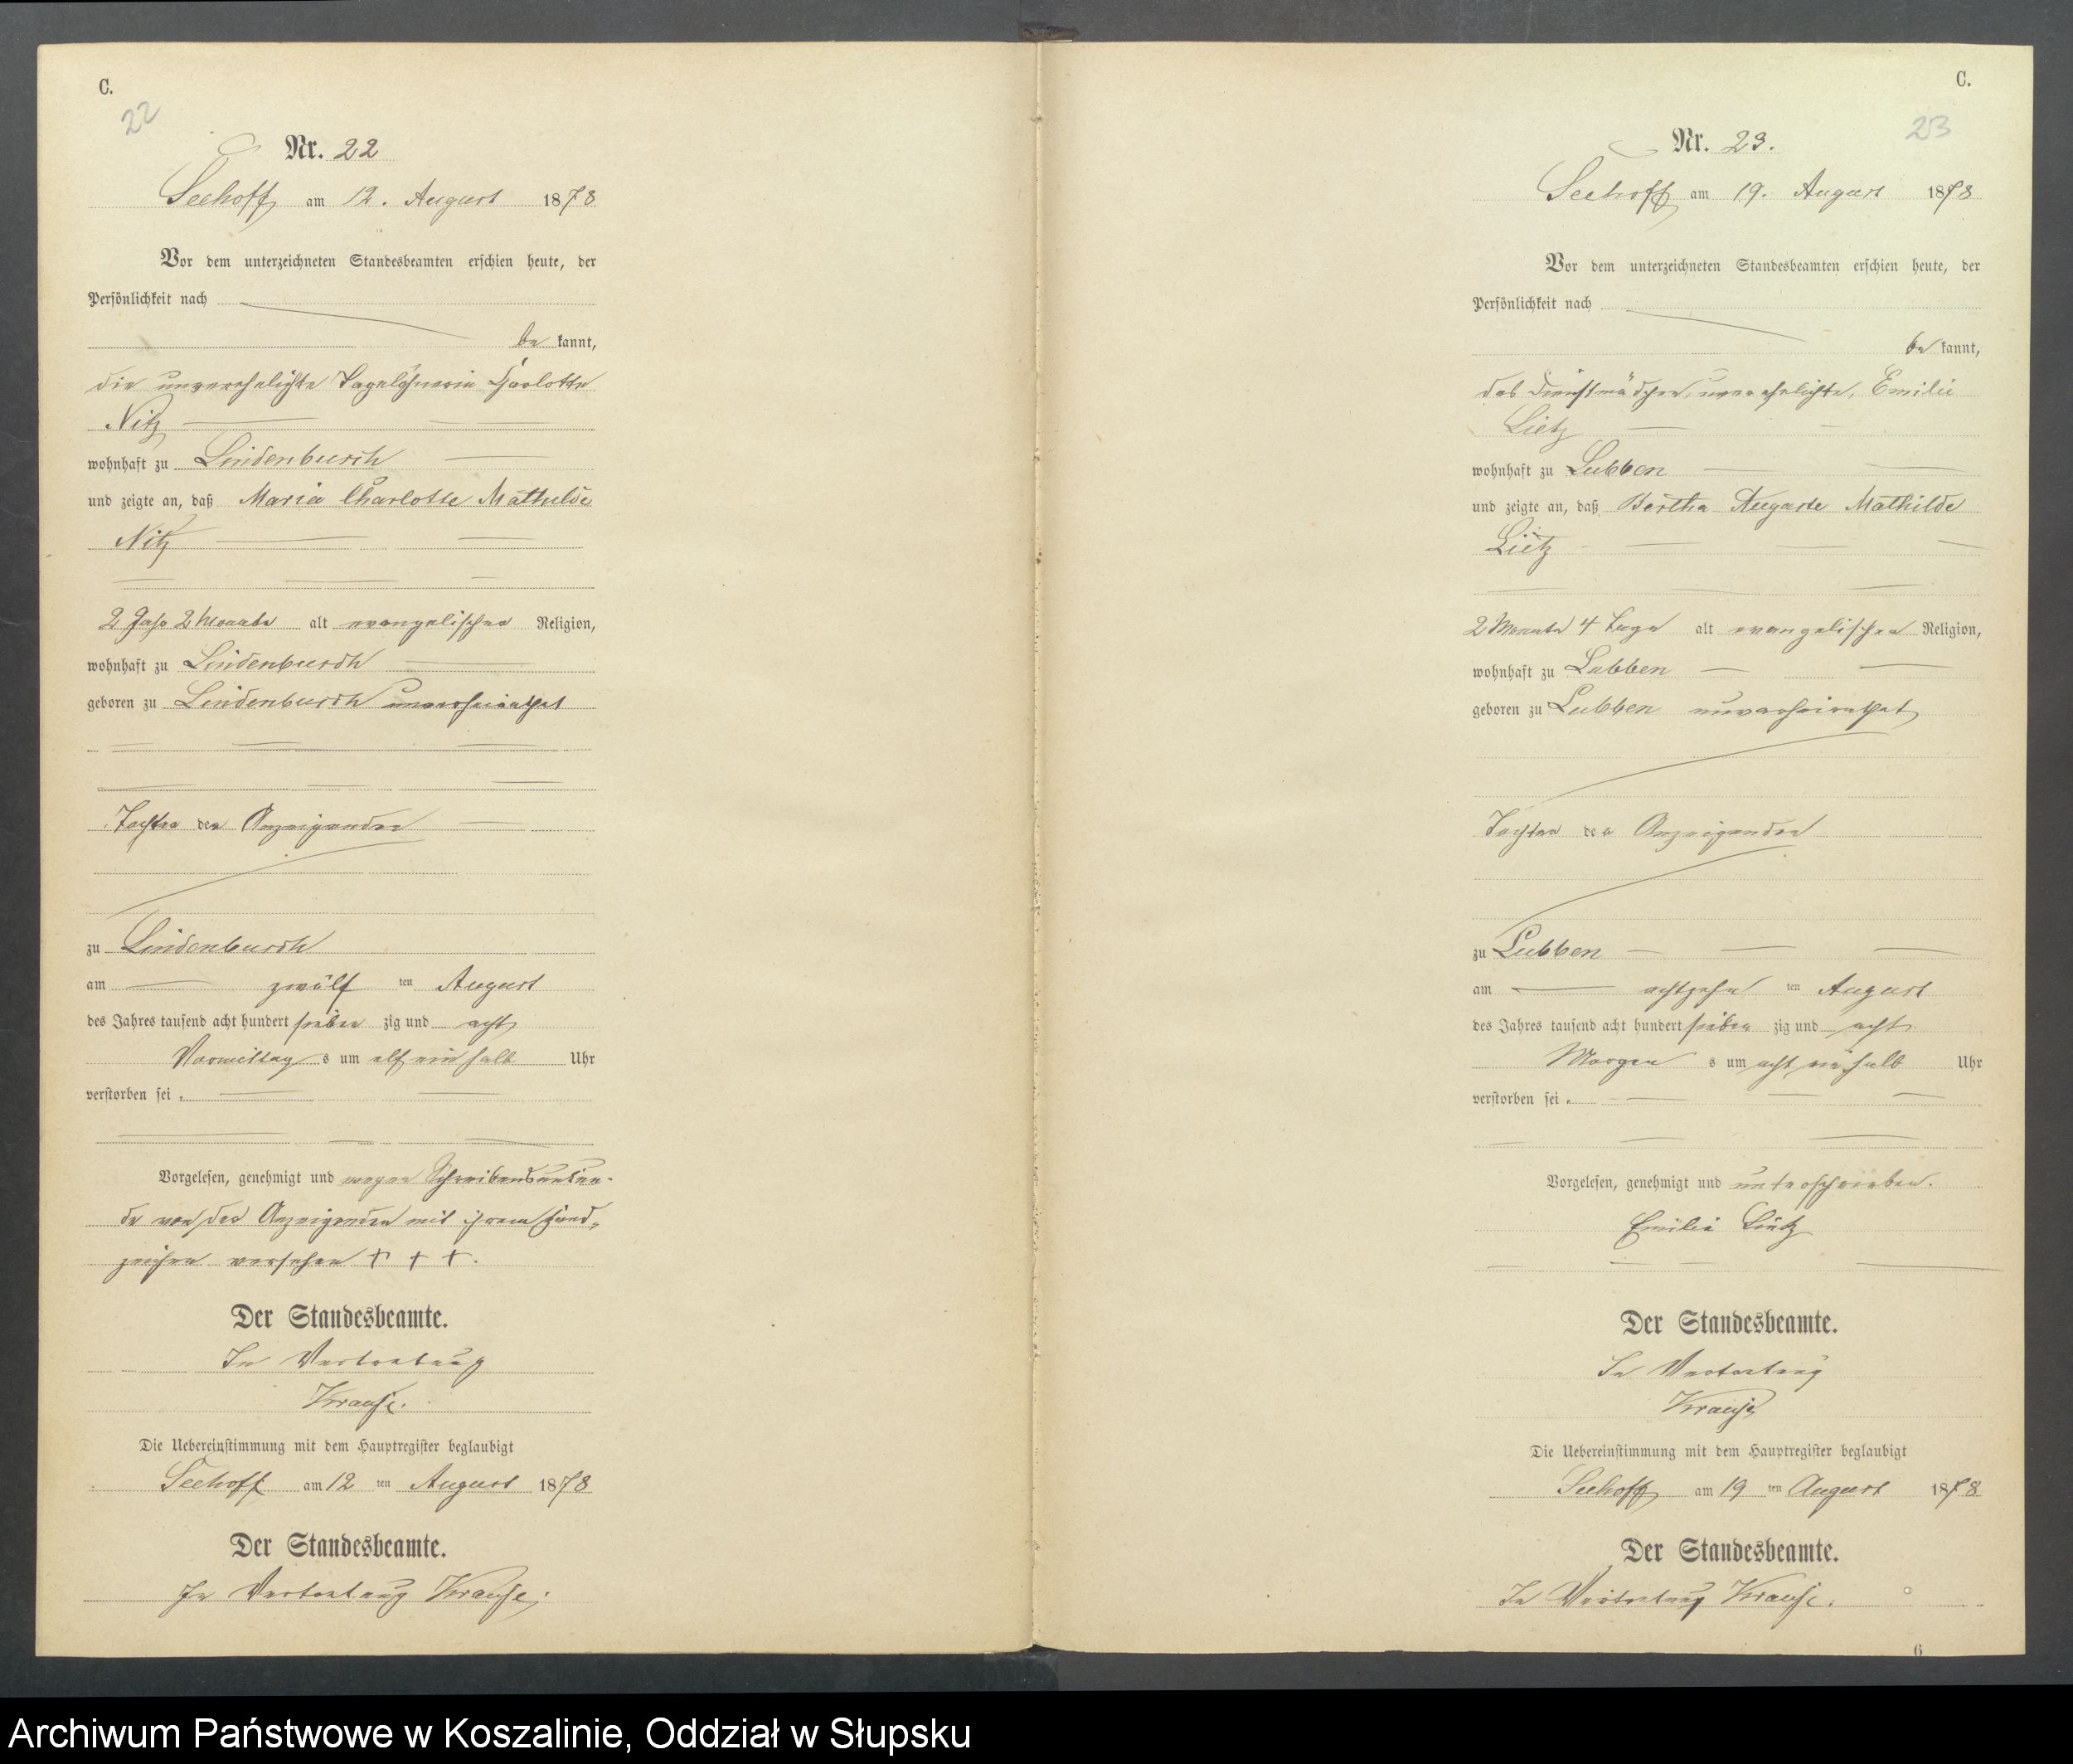 C.
22
Nr. 22
Seehoff am 12. August 1878
Vor dem unterzeichneten Standesbeamten erschien heute, der
Persönlichkeit nach
be kannt,
die unverehelichte Tagelöhnerin Charlotte
Nitz
wohnhaft zu Lindenbusch
und zeigte an, daß Maria Charlotte Mathilde
Nitz
2 Jahr 2 Monate alt evangelischer Religion,
wohnhaft zu Lindenbusch
geboren zu Lindenbusch unverheirathet
Tochter der Anzeigenden
zu Lindenbusch
am zwölf ten August
des Jahres tausend acht hundert sieben zig und acht
Vormittag s um elf ein halb Uhr
verstorben sei.
Vorgelesen, genehmigt und wegen Schreibensunkun-
de von der Anzeigenden mit ihrem Hand-
zeichen versehen + + +.
Der Standesbeamte.
In Vertretung
Krause.
Die Uebereinstimmung mit dem Hauptregister beglaubigt
Seehoff am 12 ten August 1878
Der Standesbeamte.
In Vertretung Krause.
C.
23
Nr. 23.
Seehoff am 19. August 1878
Vor dem unterzeichneten Standesbeamten erschien heute, der
Persönlichkeit nach
be kannt,
das Dienstmädchen, unverehelichte, Emilie
Lietz
wohnhaft zu Lubben
und zeigte an, daß Bertha Auguste Mathilde
Lietz
2 Monate 4 Tage alt evangelischer Religion,
wohnhaft zu Lubben
geboren zu Lubben unverheirathet
Tochter der Anzeigenden
zu Lubben
am achtzehn ten August
des Jahres tausend acht hundert sieben zig und acht
Morgen s um acht ein halb Uhr
verstorben sei.
Vorgelesen, genehmigt und unterschrieben.
Emilie Lietz
Der Standesbeamte.
In Vertretung
Krause
Die Uebereinstimmung mit dem Hauptregister beglaubigt
Seehoff am 19 ten August 1878
Der Standesbeamte.
In Vertretung Krause.
6
Archiwum Państwowe w Koszalinie, Oddział w Słupsku